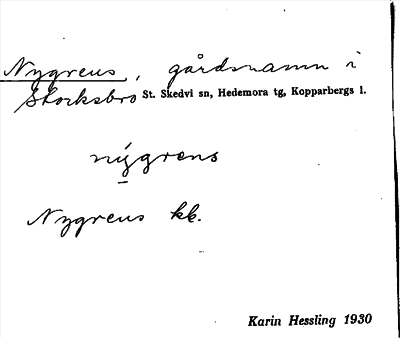 Nygrens, gårdsnamn i
Skorksbro St. Skedvi sn, Hedemora tg, Kopparbergs l.
nýgrens
Nygrens kb.
Karin Hessling 1930